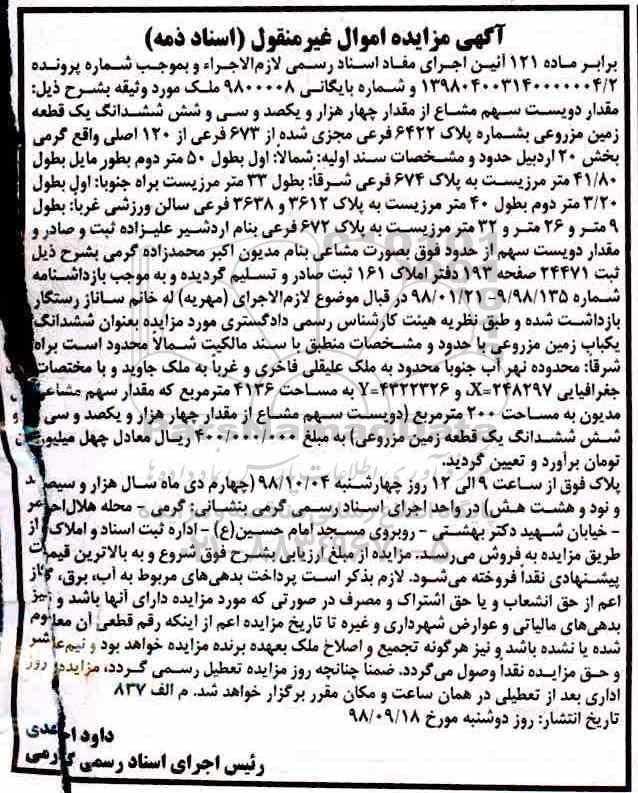 آگهی مزایده اموال غیرمنقول (اسناد ذمه)
برابر ماده ۱۲۱ آئین اجرای مفاد اسناد رسمی لازم‌الاجراء و بموجب شماره پرونده
۱۳۹۸۰۴۰۰۳۱۴۰۰۰۰۰۰۴/۲ و شماره بایگانی ۹۸۰۰۰۰۸ ملک مورد وثیقه بشرح ذیل:
مقدار دویست سهم مشاع از مقدار چهار هزار و یکصد و سی و شش ششدانگ یک قطعه
زمین مزروعی بشماره پلاک ۶۴۲۲ فرعی مجزی شده از ۶۷۳ فرعی از ۱۲۰ اصلی واقع گرمی
بخش ۲۰ اردبیل حدود و مشخصات سند اولیه: شمالاً: اول بطول ۵۰ متر دوم بطور مایل بطول
۴۱/۸۰ متر مرزیست به پلاک ۶۷۴ فرعی شرقاً: بطول ۳۳ متر مرزیست براه جنوبا: اول بطول
۳/۲۰ متر دوم بطول ۴۰ متر مرزیست به پلاک ۳۶۱۲ و ۳۶۳۸ فرعی سالن ورزشی غرباً: بطول
۹ متر و ۲۶ متر و ۳۲ متر مرزیست به پلاک ۶۷۲ فرعی بنام اردشیر علیزاده ثبت و صادر و
مقدار دویست سهم از حدود فوق بصورت مشاعی بنام مدیون اکبر محمدزاده گرمی بشرح ذیل
ثبت ۲۴۴۷۱ صفحه ۱۹۳ دفتر املاک ۱۶۱ ثبت صادر و تسلیم گردیده و به موجب بازداشتنامه
شماره ۹/۹۸/۱۳۵- ۹۸/۰۱/۲۱ در قبال موضوع لازم‌الاجرای (مهریه) له خانم ساناز رستگار
بازداشت شده و طبق نظریه هیئت کارشناس رسمی دادگستری مورد مزایده بعنوان ششدانگ
یکباب زمین مزروعی با حدود و مشخصات منطبق با سند مالکیت شمالاً محدود است براه
شرقا: محدوده نهر آب جنوباً محدود به ملک علیقلی فاخری و غرباً به ملک جاوید و با مختصات
جغرافیایی X=۲۴۸۲۹۷، و Y=۴۳۲۲۳۲۶ به مساحت ۴۱۳۶ مترمربع که مقدار سهم مشاعی
مدیون به مساحت ۲۰۰ مترمربع (دویست سهم مشاع از مقدار چهار هزار و یکصد و سی و
شش ششدانگ یک قطعه زمین مزروعی) به مبلغ ۴۰۰/۰۰۰/۰۰۰ ریال معادل چهل میلیون
تومان برآورد و تعیین گردید.
پلاک فوق از ساعت ۹ الی ۱۲ روز چهارشنبه ۹۸/۱۰/۰۴ (چهارم دی ماه سال هزار و سیصد
و نود و هشت هش) در واحد اجرای اسناد رسمی گرمی بنشانی: گرمی - محله هلال‌احمر
- خیابان شهید دکتر بهشتی - روبروی مسجد امام حسین(ع) - اداره ثبت اسناد و املاک از
طریق مزایده به فروش می‌رسد. مزایده از مبلغ ارزیابی بشرح فوق شروع و به بالاترین قیمت
پیشنهادی نقداً فروخته می‌شود. لازم بذکر است پرداخت بدهی‌های مربوط به آب، برق، گاز
اعم از حق انشعاب و یا حق اشتراک و مصرف در صورتی که مورد مزایده دارای آنها باشد و نیز
بدهی‌های مالیاتی و عوارض شهرداری و غیره تا تاریخ مزایده اعم از اینکه رقم قطعی آن معلوم
شده یا نشده باشد و نیز هرگونه تجمیع و اصلاح ملک بعهده برنده مزایده خواهد بود و نیم‌عشر
و حق مزایده نقداً وصول می‌گردد. ضمناً چنانچه روز مزایده تعطیل رسمی گردد، مزایده روز
اداری بعد از تعطیلی در همان ساعت و مکان مقرر برگزار خواهد شد. م الف ۸۳۷
تاریخ انتشار: روز دوشنبه مورخ ۹۸/۰۹/۱۸
داود احمدی
رئیس اجرای اسناد رسمی گرمی
ParsNamadData